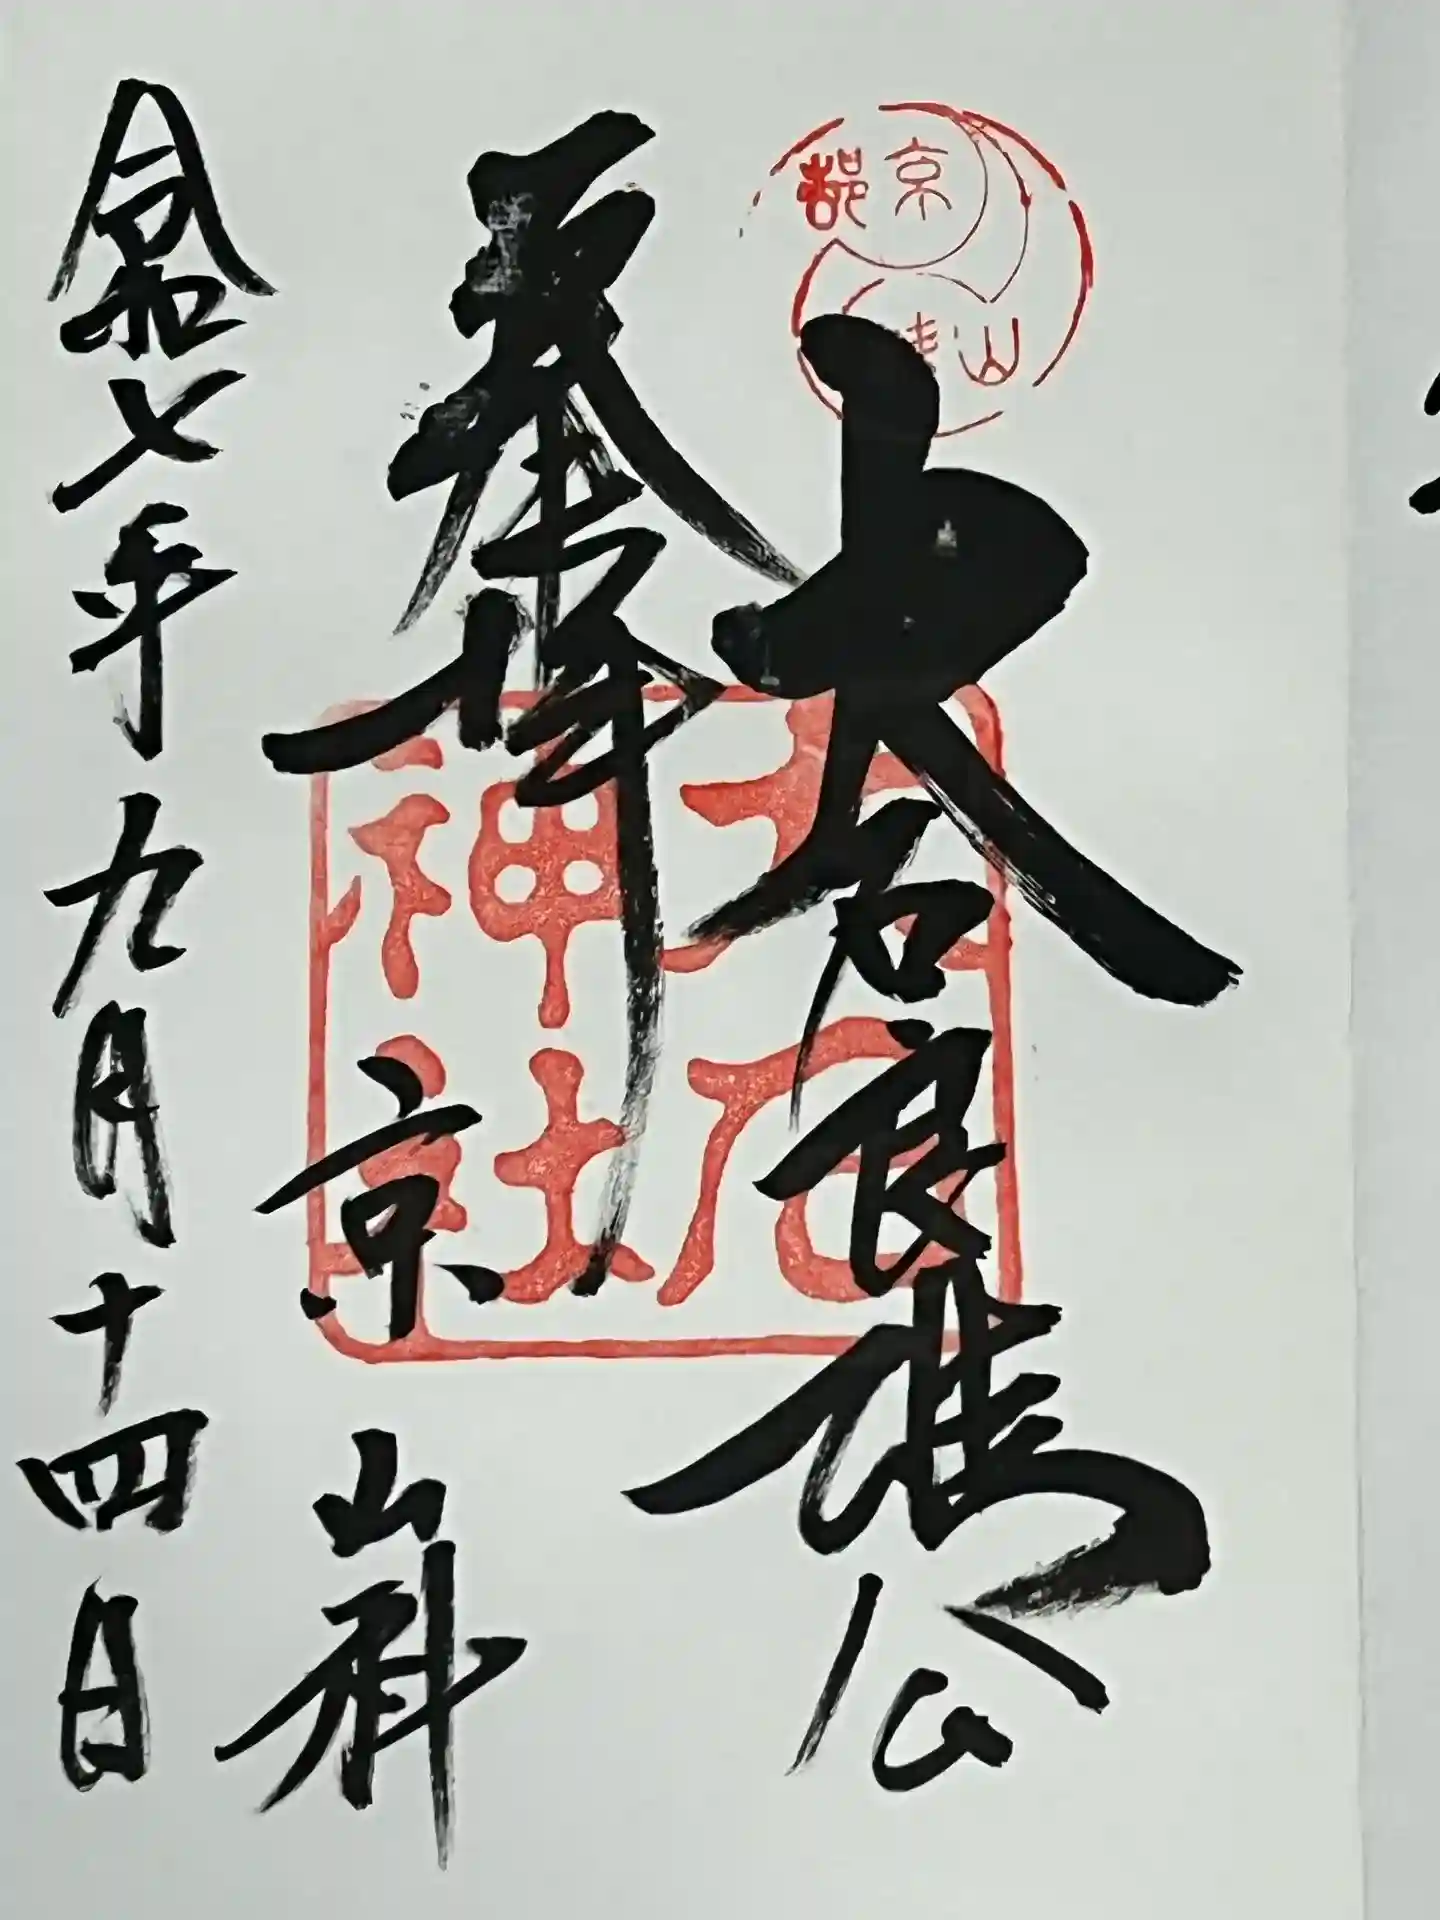 京都
山
大石良雄公
奉拝
京
山科
大石
神社
令和七年九月十四日